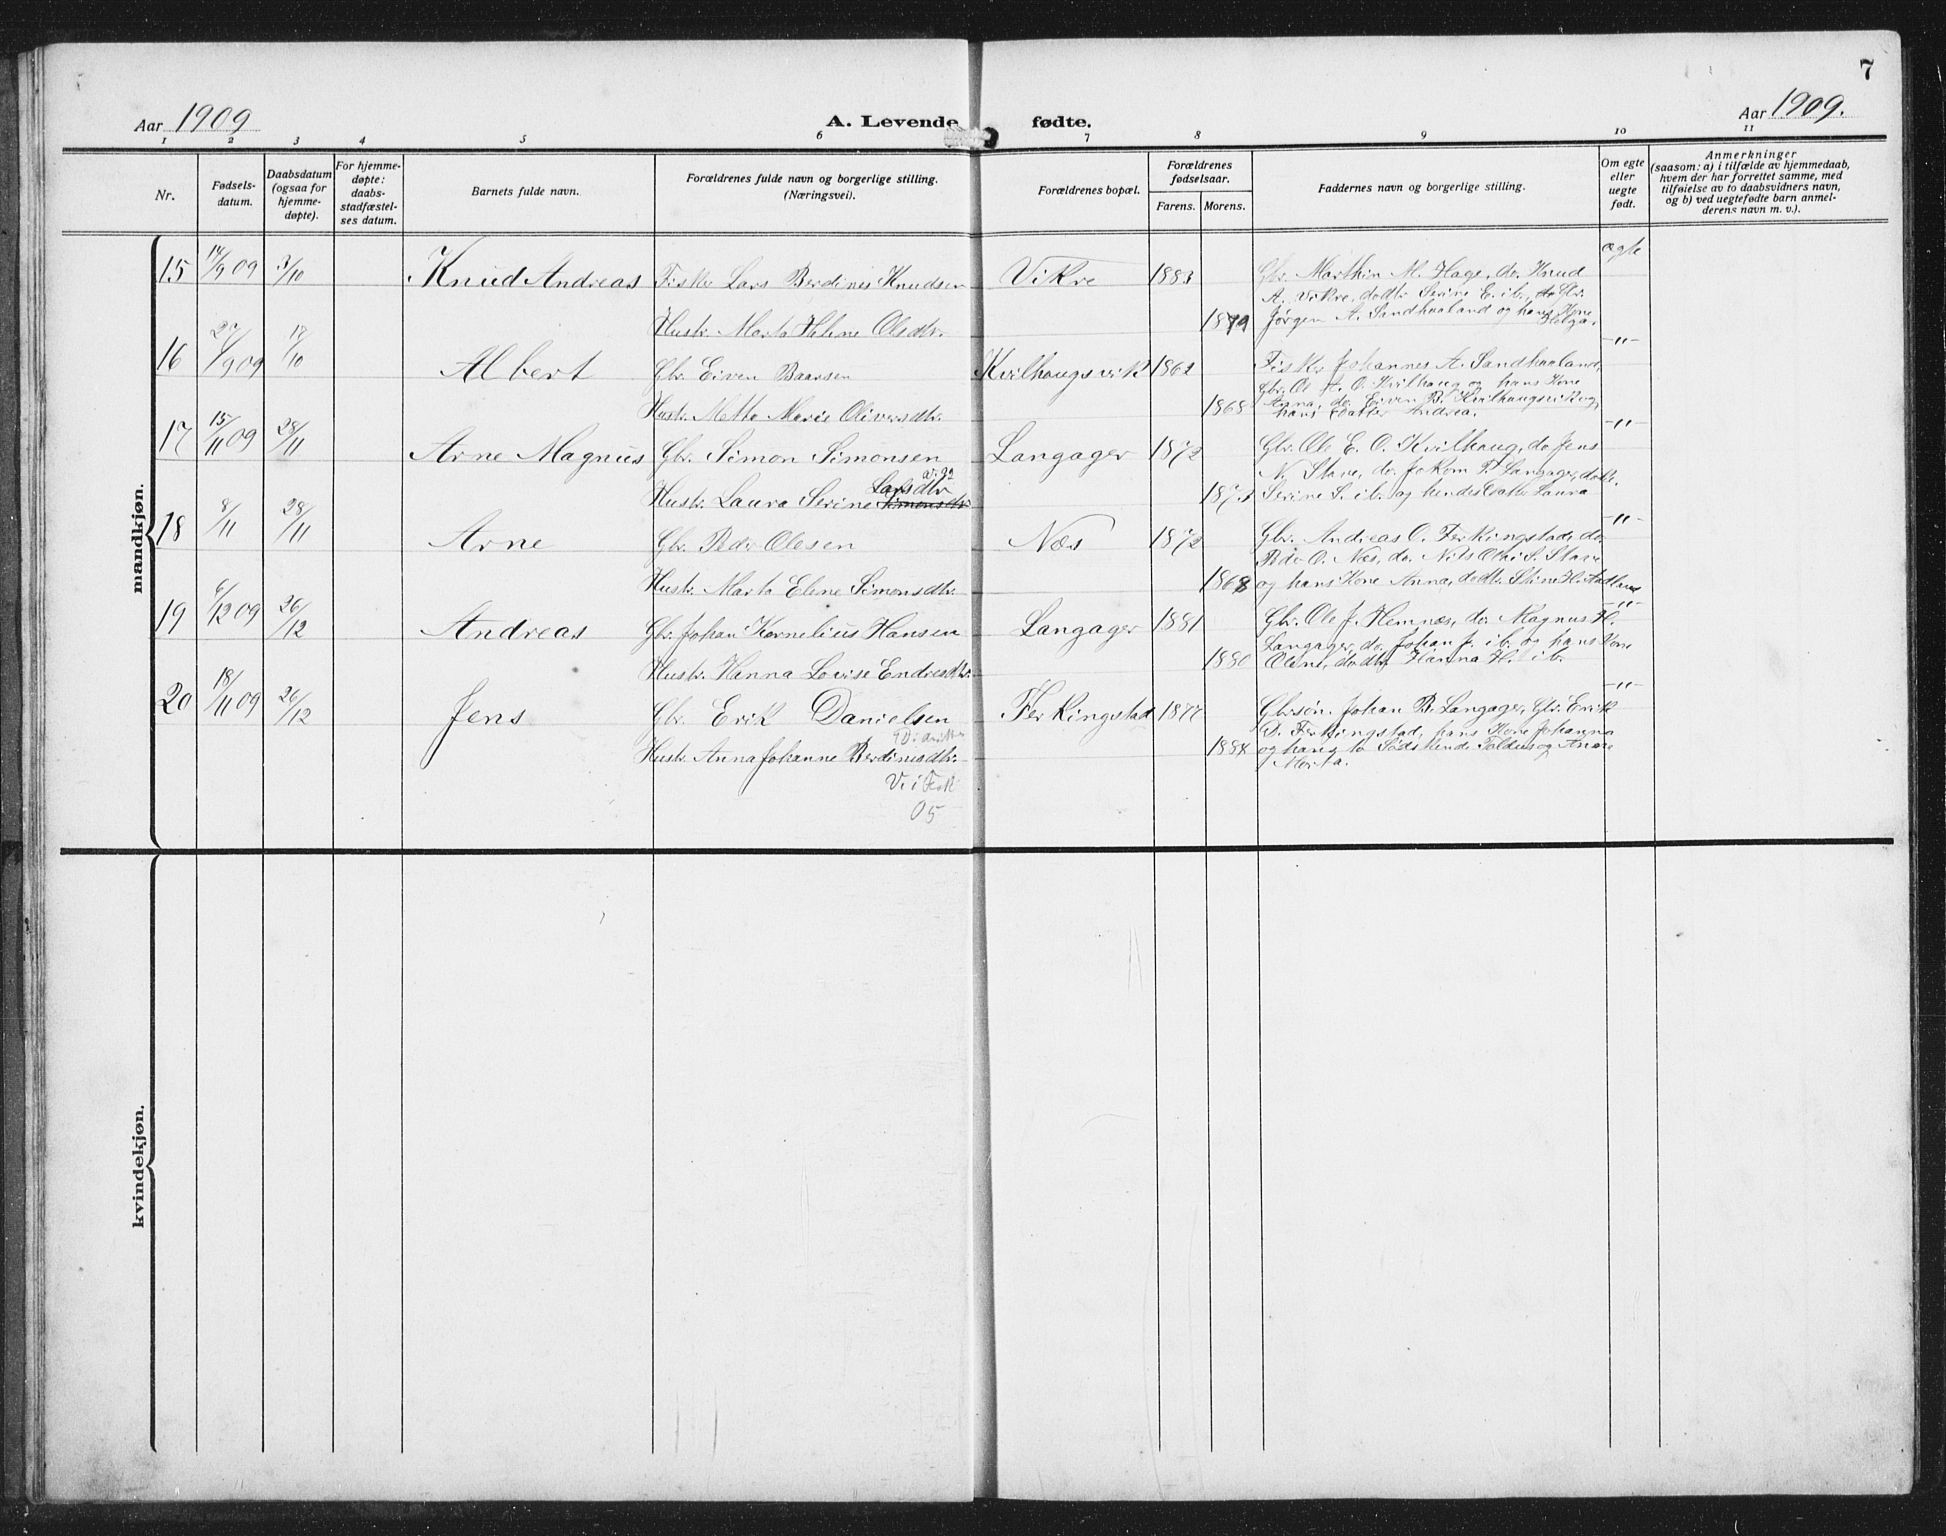 7
Aar 1909 A. Levende fødte. Aar 1909.
1 2 3 4 5 6 7 8 9 10 11
Nr.
Fødsels-
datum.
Daabsdatum
(ogsaa for
hjemme-
døpte).
For hjemme-
døpte:
daabs-
stadfæstel-
ses datum.
Barnets fulde navn.
Forældrenes fulde navn og borgerlige stilling.
(Næringsvei).
Forældrenes bopæl.
Forældrenes
fødselsaar.
Farens. Morens.
Faddernes navn og borgerlige stilling.
Om egte
eller
uegte
født.
Anmerkninger
(saasom: a) i tilfælde av hjemmedaab,
hvem der har forrettet samme, med
tilføielse av to daabsvidners navn,
og b) ved uegtefødte barn anmel-
derens navn m. v.).
mandkjøn.
15 14/9 09 3/10 Knud Andreas Fisker Lars Berdines Knudsen Vikre 1883 Gbr. Marthin M. Hage, do. Knud ægte
A. Vikre, do dtr Serine E. ib., do Gbr.
Hustr. Marta Helene Olsdtr. 1879 Jørgen A. Sandhaaland og hans Kone
Helga.
16 27/9 09 17/10 Albert Gbr. Eiven Baarsen Kvilhaugsvik 1862 Fisker Johannes A. Sandhaaland, -"-
Gbr. Ole A. O. Kvilhaug og hans Kone
Hustr. Metta Marie Oliversdtr. 1868 Anna, do. Eiven B. Kvilhaugsvik og
hans Datter Andrea.
17 15/11 09 28/11 Arne Magnus Gbr. Simon Simonsen Langager 1872 Gbr. Ole E. O. Kvilhaug, do Jens -"-
N. Stave, do. Jokom P. Langager, do
Larsdtr
Hustr. Laura Serine Simonsdtr 1873 Serine S. ib. og hendes Datter Laura
18 8/11 28/11 Arne Gbr. Peder Olesen Næs 1872 Gbr. Andreas O. Ferkingstad, do. -"-
Peder O. Næs, do. Nils Olai S. Stave
Hustr. Marta Elene Simonsdtr. 1868 og hans Kone Anna, do dtr. Stine H. Stadland
19 6/12 09 26/12 Andreas Gbr. Johan Kornelius Hansen Langager 1881 Gbr. Ole J. Hemnæs, do. Magnus H. -"-
Langager, do. Johan J. ib. og hans Kone
Hustr. Hanna Lovise Endresdtr. 1880 Olene, do dtr. Hanna H. ib.
20 18/11 09 26/12 Jens Gbr. Erik Danielsen Ferkingstad 1877 Gbr.søn. Johan B. Langager, Gbr. Erik -"-
D. Ferkingstad, hans Kone Johanna
Hustr. Anna Johanne Berdinesdtr. 1884 og hans to Sødskende Toldus og Anne
Marta.
05
kvindekjøn.